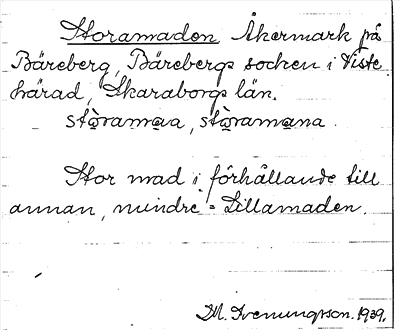 Storamaden Åkermark på
Bäreberg, Bärebergs socken i Viste
härad, Skaraborgs län.
stòramaa, stòramana.
Stor mad i förhållande till
annan, mindre = Lillamaden.
M. Ivenungsson. 1939.